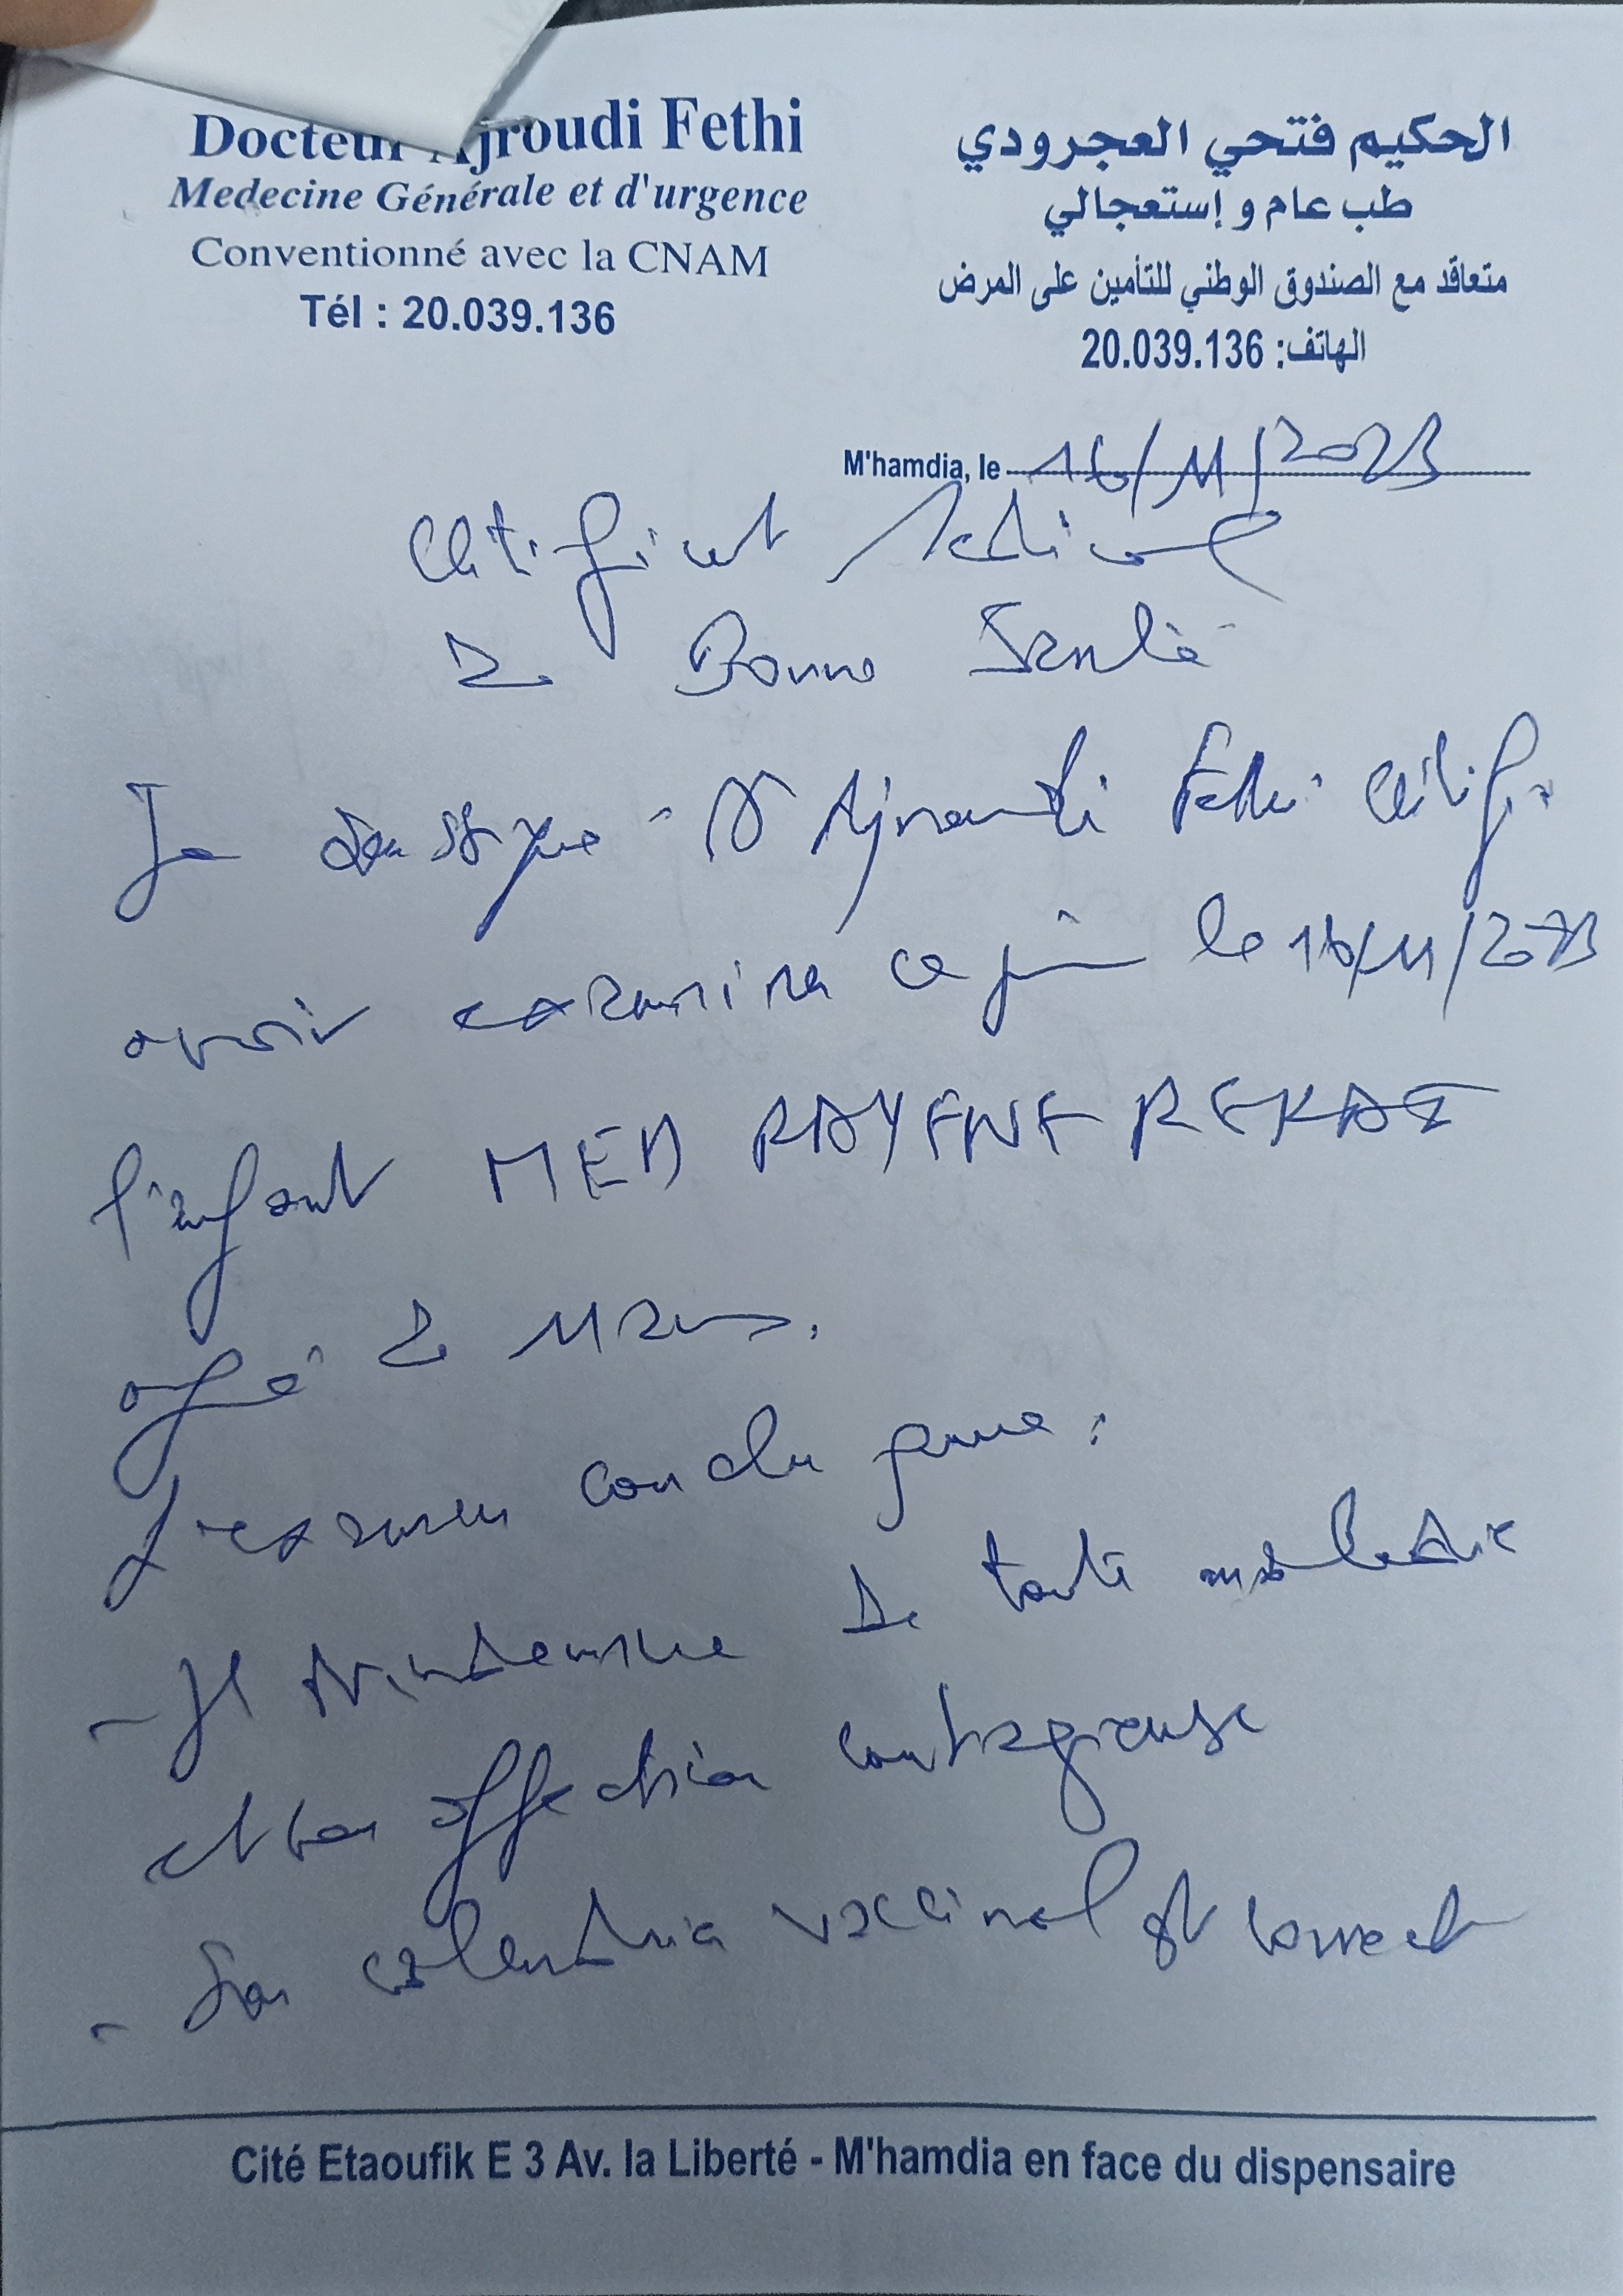 Docteur Ajroudi Fethi
Medecine Générale et d'urgence
Conventionné avec la CNAM
Tél : 20.039.136
الحكيم فتحي العجرودي
طب عام و إستعجالي
متعاقد مع الصندوق الوطني للتأمين على المرض
الهاتف: 20.039.136
M'hamdia, le 16/11/2023
Certificat Médical
de Bonne Santé
Je soussigné Dr Ajroudi Fethi certifie
avoir examiné ce jour le 16/11/2023
l'enfant MED RAYENE
agé de 11 ans.
L'examen conclu que :
- Il est indemne de toute maladie
et ou affection contagieuse
- Son calendrier vaccinal est correct
Cité Etaoufik E 3 Av. la Liberté - M'hamdia en face du dispensaire